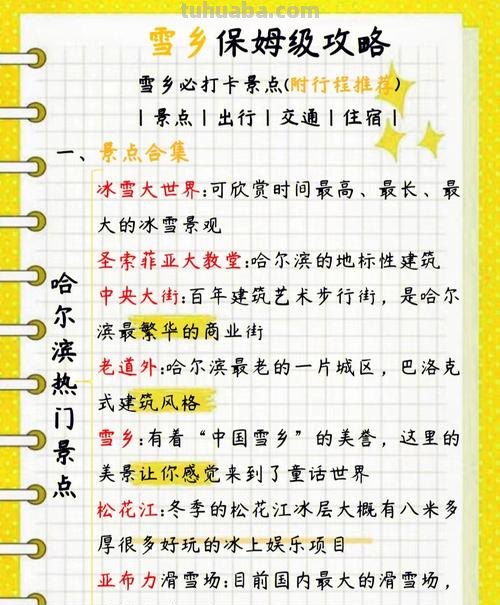 tuhuaba.com
雪乡保姆级攻略
雪乡必打卡景点(附行程推荐)
|景点|出行|交通|住宿|
一、景点合集
哈尔滨热门景点
冰雪大世界:可欣赏时间最高、最长、最
大的冰雪景观
圣索菲亚大教堂:哈尔滨的地标性建筑
中央大街:百年建筑艺术步行街，是哈尔
滨最繁华的商业街
老道外:哈尔滨最老的一片城区，巴洛克
式建筑风格
雪乡:有着“中国雪乡”的美誉，这里的
美景让你感觉来到了童话世界
松花江:冬季的松花江冰层大概有八米多
厚很多好玩的冰上娱乐项目
亚布力滑雪场:目前国内最大的滑雪场，